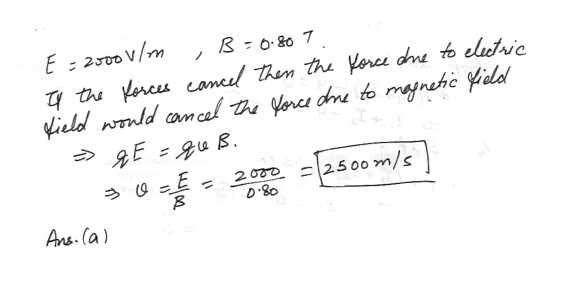 E = 2000 V/m , B = 0.80 T.
If the forces cancel then the force due to electric
field would cancel the force due to magnetic field
⇒ qE = qvB.
⇒ v = E/B = 2000/0.80 = 2500 m/s
Ans. (a)